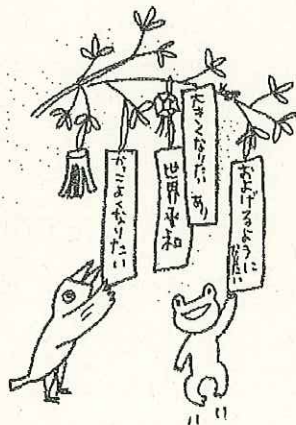 およげるように
なりたい
大きくなりたい あり
世界平和
かっこよくなりたい